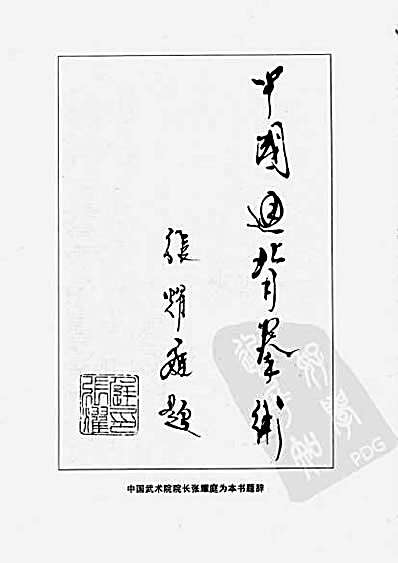 中國通背拳術
張耀庭題
張耀庭印
中国武术院院长张耀庭为本书题辞
PDG